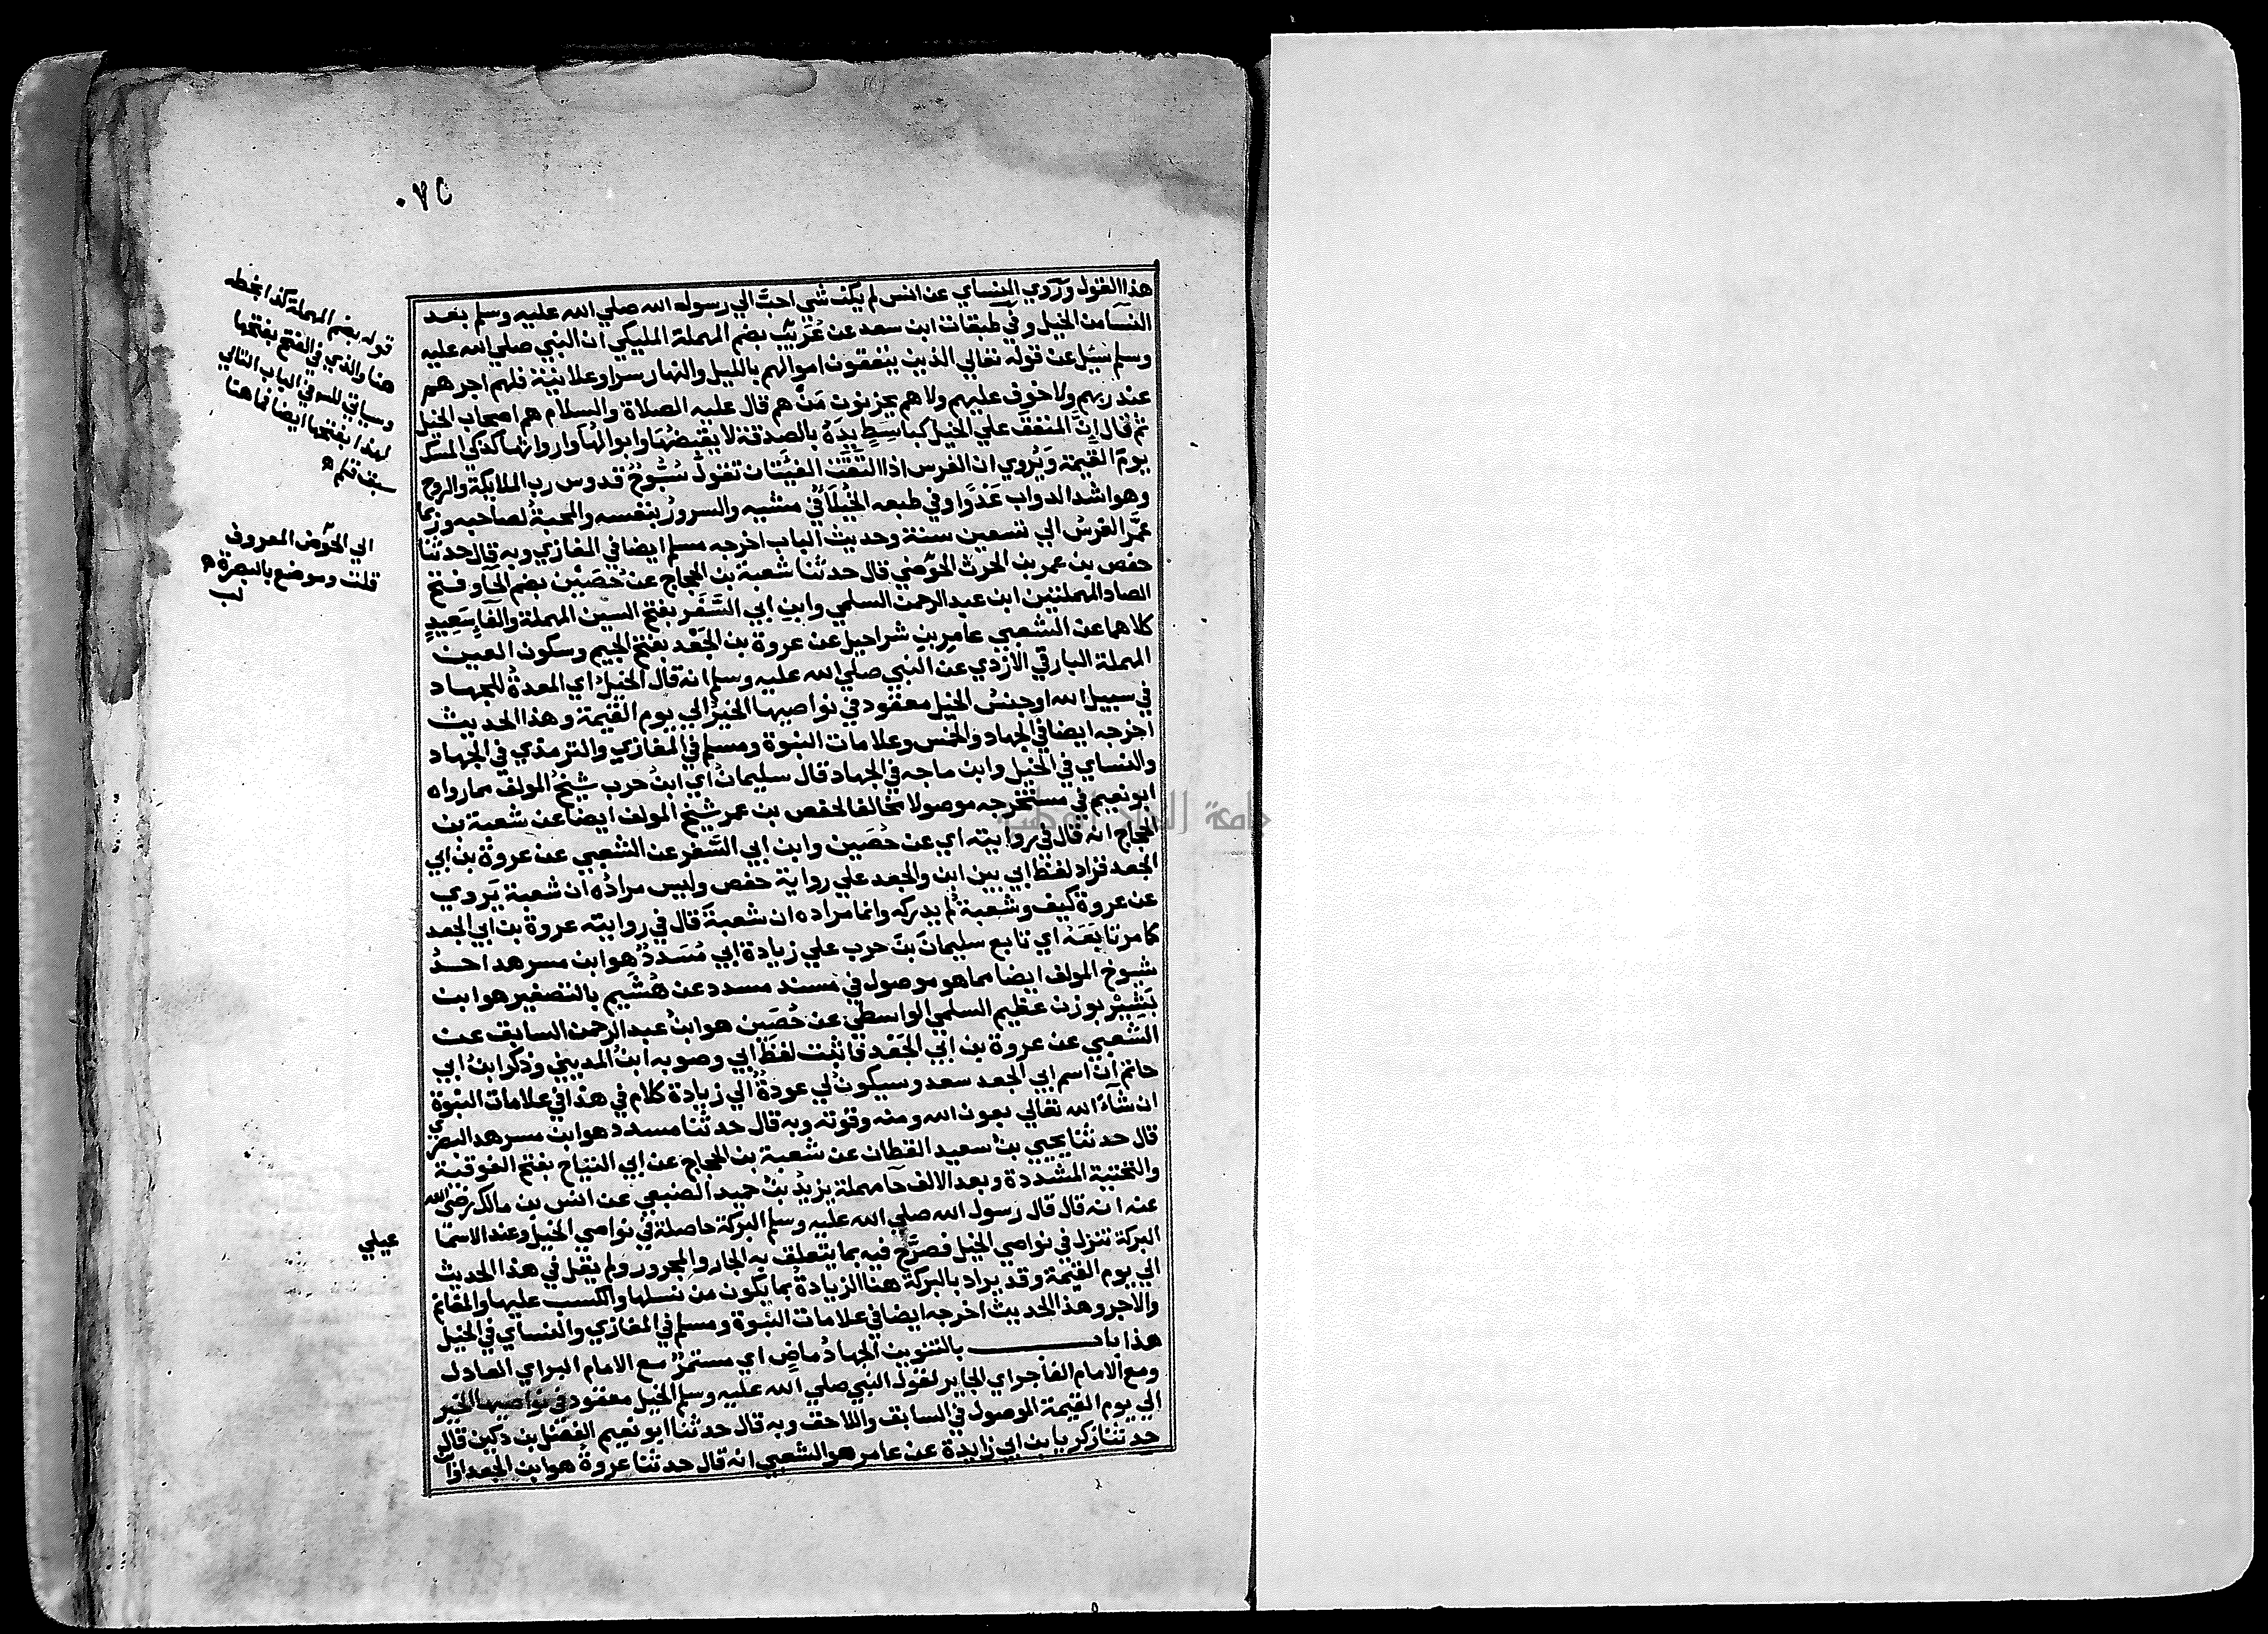 ٠٧٥
هذا القول وروي النساي عن انس لم يكن شي احب الي رسول الله صلي الله عليه وسلم بعد
النسآ من الخيل وفي طبقات ابن سعد عن عُرَيْب بضم المهملة المليكي ان النبي صلي الله عليه
وسلم سئل عن قوله تعالي الذين ينفقون اموالهم بالليل والنهار سرا وعلانية فلهم اجرهم
عند ربهم ولا خوف عليهم ولا هم يحزنون مَنْ هم قال عليه الصلاة والسلام هم اصحاب الخيل
ثم قال اِنَّ المنفق علي الخيل كباسِطِ يدَهُ بالصدقة لا يقبضها وابوالها وارواثها كذكي المسك
يومَ القيمة وَيُروي ان الفرس اذا التَقَتْ الفيَّتان تقول سُبُّوحٌ قدوس رب الملايكة والروح
وهو اشد الدواب عَدْوًا وفي طبعه الخُيَلَآء في مشيه والسرورُ بنفسه والمحبةُ لصاحبه وربما
عمَّر الفرسُ الي تسعين سنة وحديث الباب اخرجه مسلم ايضا في المغازي وبه قال حدثنا
حفص بن عمر بن الحرث الحَوْضي قال حدثنا شعبة بن الحجاج عن حُصَيْن بضم الحآ وفتح
الصاد المهملتين ابن عبد الرحمن السلمي وابنِ ابي السَّفَر بفتح السين المهملة والفآ سَعِيدٍ
كلاهما عن الشعبي عامر بنِ شراحيل عن عروة بن الجَعْد بفتح الجيم وسكون العين
المهملة البارقي الازدي عن النبي صلي الله عليه وسلم انه قال الخيلُ اي المعدةُ للجهاد
في سبيل الله او جنسُ الخيل معقود في نواصيها الخيرُ الي يوم القيمة وهذا الحديث
اخرجه ايضا في الجهاد والخمس وعلامات النبوة ومسلم في المغازي والترمذي في الجهاد
والنساي في الخيل وابن ماجه في الجهاد قال سليمانُ اي ابنُ حرب شيخُ المولف مما رواه
ابو نعيم في مستخرجه موصولا مخالفا لحفص بن عمر شيخ المولف ايضا عن شعبة بن
الحجاج انه قال في روايته اي عن حُصَين وابن ابي السَّفَر عن الشعبي عن عروة بن ابي
الجعد فزاد لفظ ابي بين ابن والجعد علي رواية حفص وليس مرادُه ان شعبة يَروي
عن عروة كيف وشعبة لم يدركه وانما مراده ان شعبةَ قال في روايته عروة بن ابي الجعد
كما مر تابَعَهُ اي تابع سليمانَ بنَ حرب علي زيادة ابي مُسَدَّدٌ هو ابن مسرهد احدُ
شيوخ المولف ايضا مما هو موصول في مسند مسدد عن هُشَيم بالتصغير هو ابن
بَشِيْر بوزن عظيم السلمي الواسطي عن حُصَين هو ابنُ عبد الرحمن السابق عن
الشعبي عن عروة بن ابي الجَعْد فاثبت لفظَ ابي وصوبه ابنُ المديني وذكر ابنُ ابي
حاتم أن اسم ابي الجعد سعد وسيكون لي عودةٌ الي زيادة كلام في هذا في علامات النبوة
ان شآء الله تعالي بعون الله ومنه وقوته وبه قال حدثنا مسدد هو ابن مسرهد البصري
قال حدثنا يحيي بنُ سعيد القطان عن شعبة بن الحجاج عن ابي التيّاح بفتح الفوقية
والتحتية المشددة وبعد الالف حآ مهملة يزيدُ بنُ حميد الضبعي عن انس بن مالك رضي الله
عنه انه قال قال رسول الله صلي الله عليه وسلم البركة حاصلة في نواصي الخيل وعند الاسما
البركة تنزل في نواصي الخيل فصرَّح فيه بما يتعلق به الجار والمجرور ولم يقل في هذا الحديث
الي يوم القيمة وقد يراد بالبركة هنا الزيادةُ بما يكون من نسلها والكسب عليها والمغانم
والاجر وهذا الحديث اخرجه ايضا في علامات النبوة ومسلم في المغازي والنساي في الخيل
هذا باب بالتنوين الجهادُ ماضٍ اي مستمرٌ مع الامام البر اي العادل
ومع الامام الفاجر اي الجاير لقول النبي صلي الله عليه وسلم الخيل معقود في نواصيها الخير
الي يوم القيمة الموصول في السابق واللاحق وبه قال حدثنا ابو نعيم الفضل بن دكين قال
حدثنا زكريا بن ابي زايدة عن عامر هو الشعبي انه قال حدثنا عروةُ هو ابن الجعد او ابن
قوله بضم المهملة كذا بخطه
هنا والذي في الفتح بفتحها
وسياتي للمـ في الباب التالي
لهذا بفتحها ايضا فما هنا
سبق قلم
الي الحَوْض المعروف
قلت وموضع بالبصرة
لب
عيلي
جامعة الملك